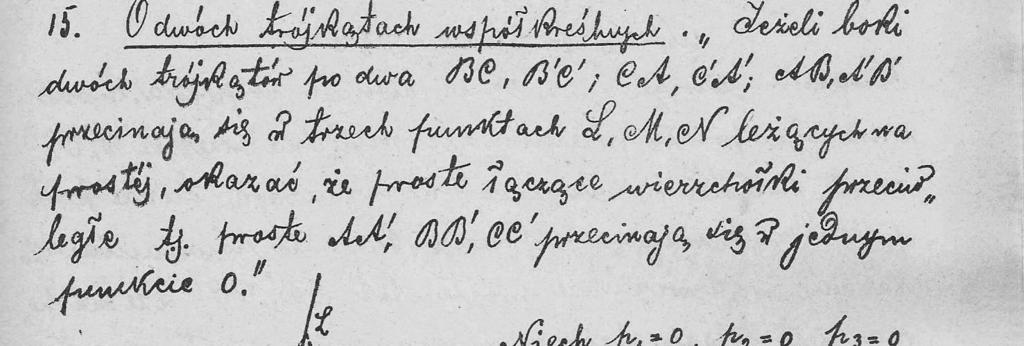 15. O dwóch trójkątach współkreślnych. „Jeżeli boki
dwóch trójkątów po dwa BC, B'C'; CA, C'A'; AB, A'B'
przecinają się w trzech punktach L, M, N leżących na
prostéj, okazać, że proste łączące wierzchołki przeciw„
ległe t.j. proste AA', BB', CC' przecinają się w jednym
punkcie O."
L
Niech p₁=0, p₂=0, p₃=0